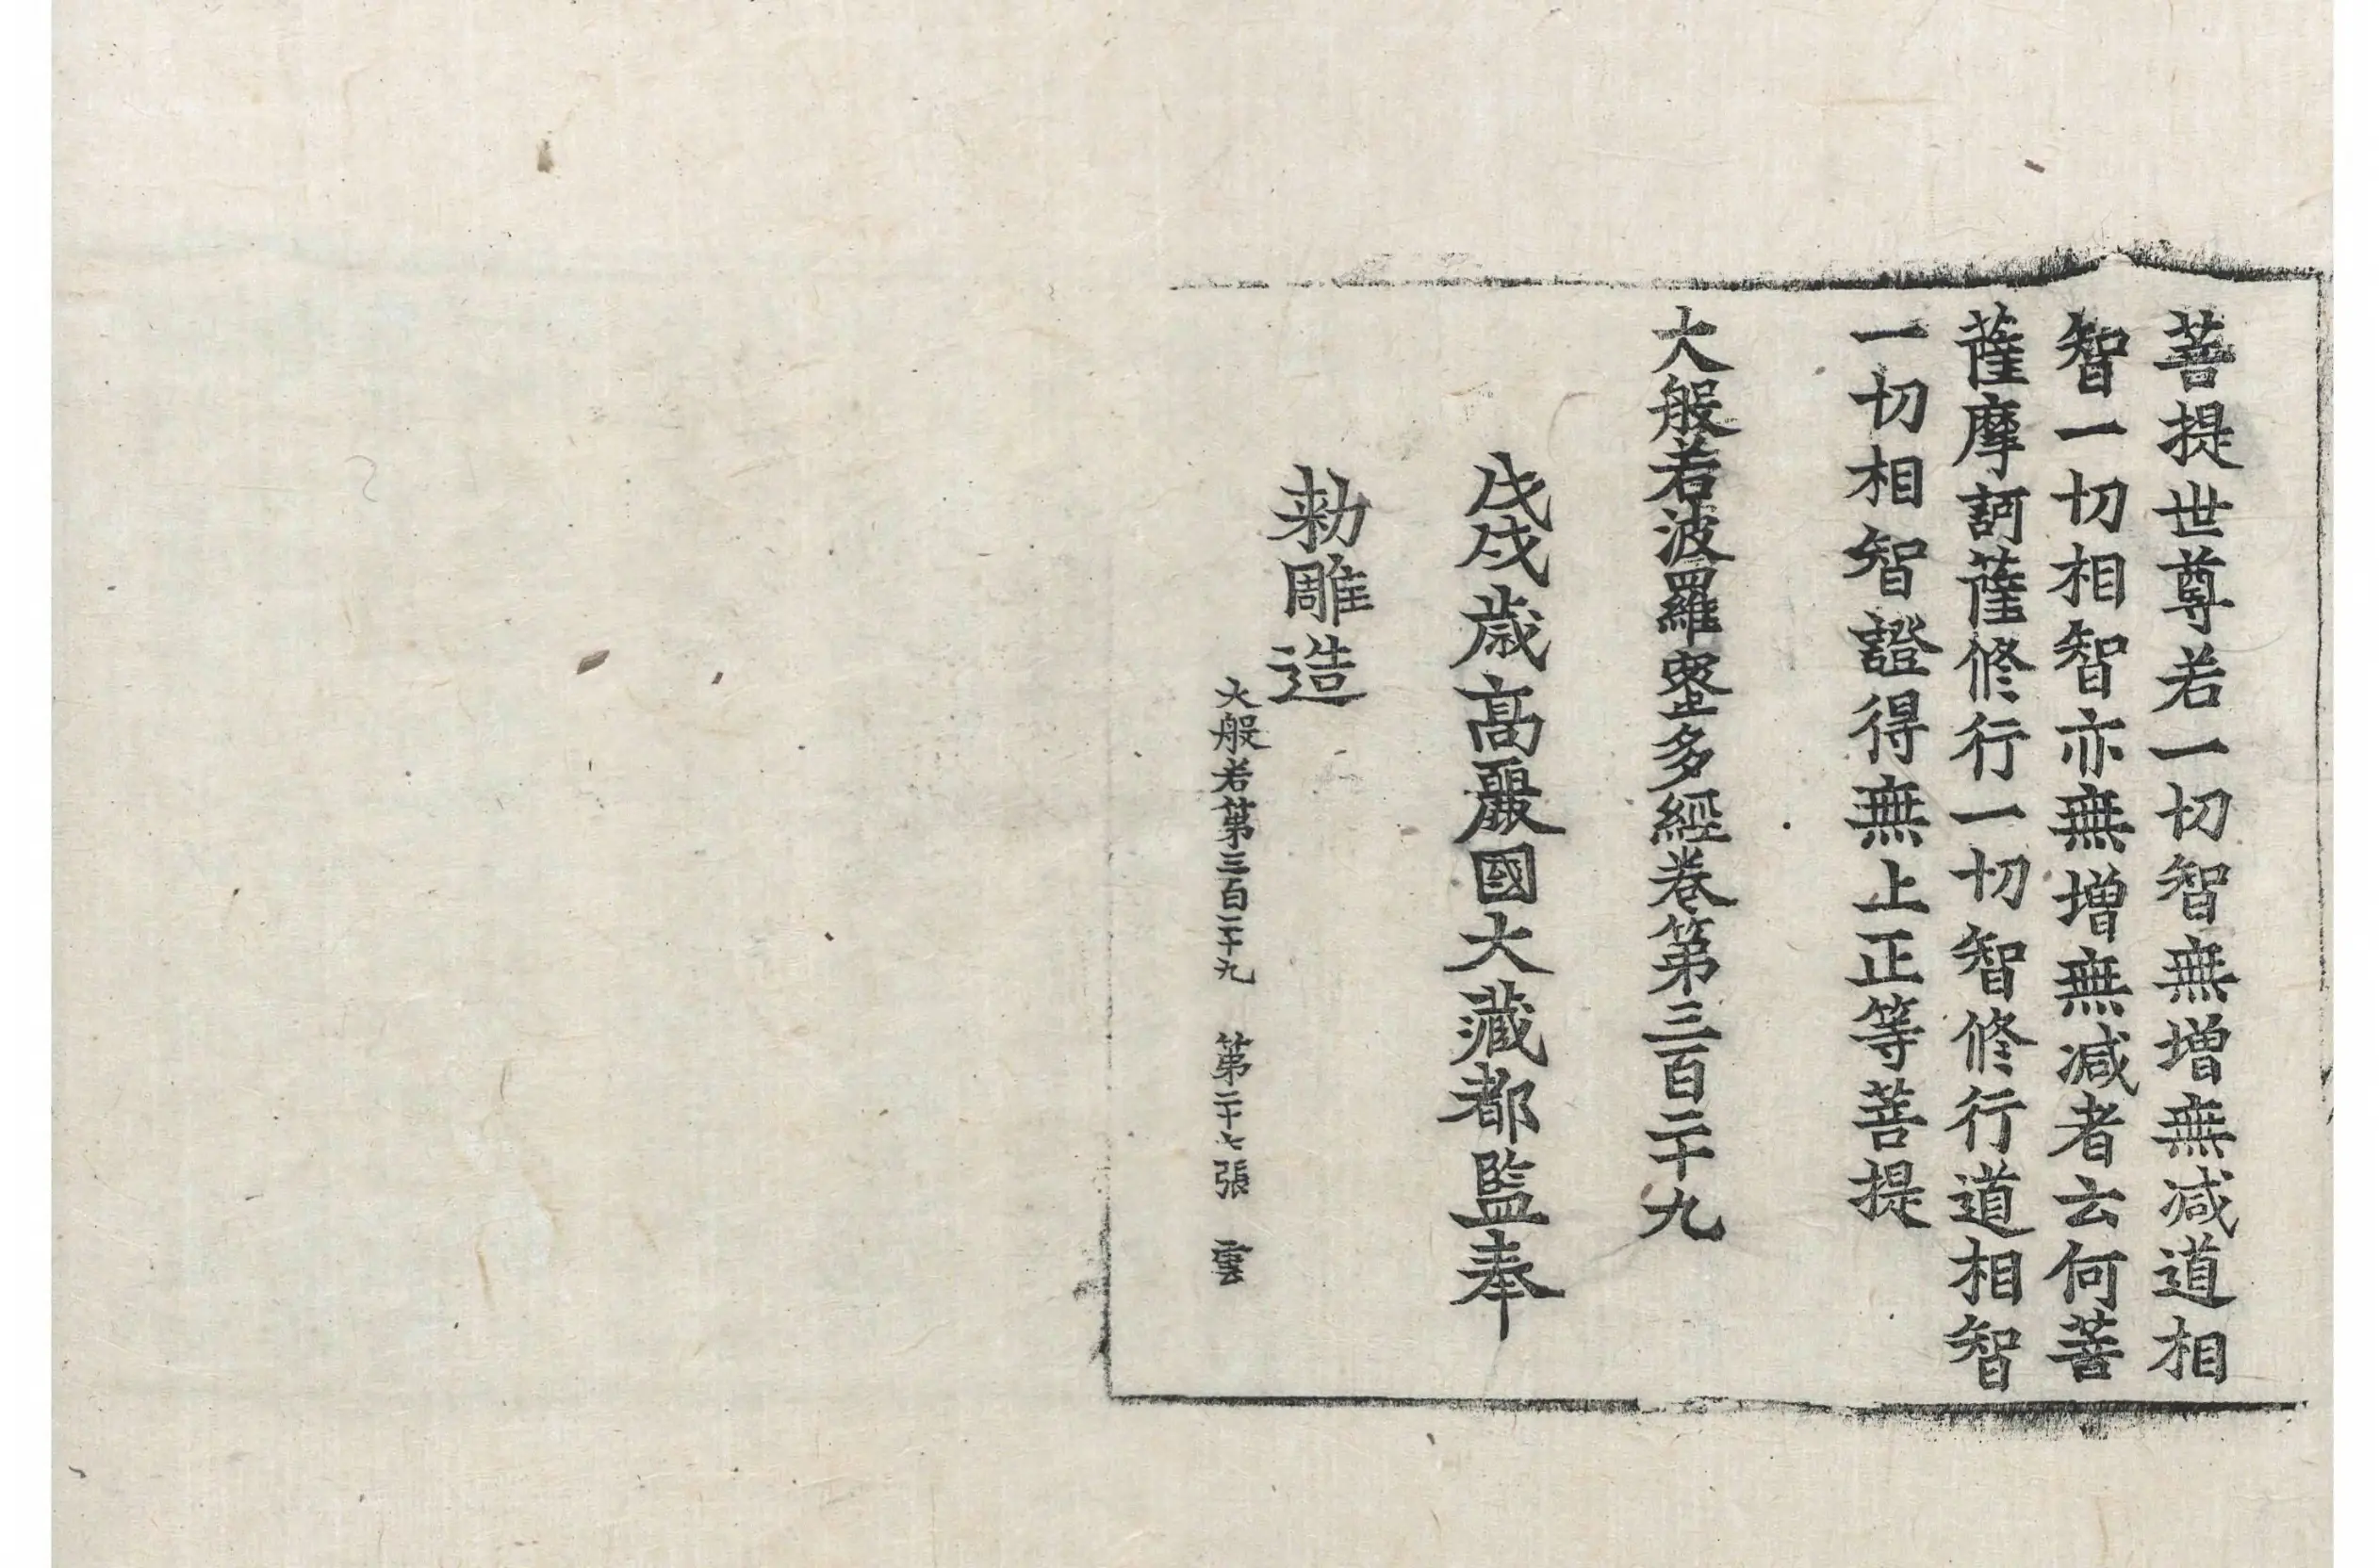 菩提世尊若一切智無增無减道相
智一切相智亦無增無减者云何菩
薩摩訶薩修行一切智修行道相智
一切相智證得無上正等菩提
大般若波羅蜜多經卷第三百二十九
戊戌歲高麗國大藏都監奉
勅雕造
大般若第三百二十九 第二十七張 雲